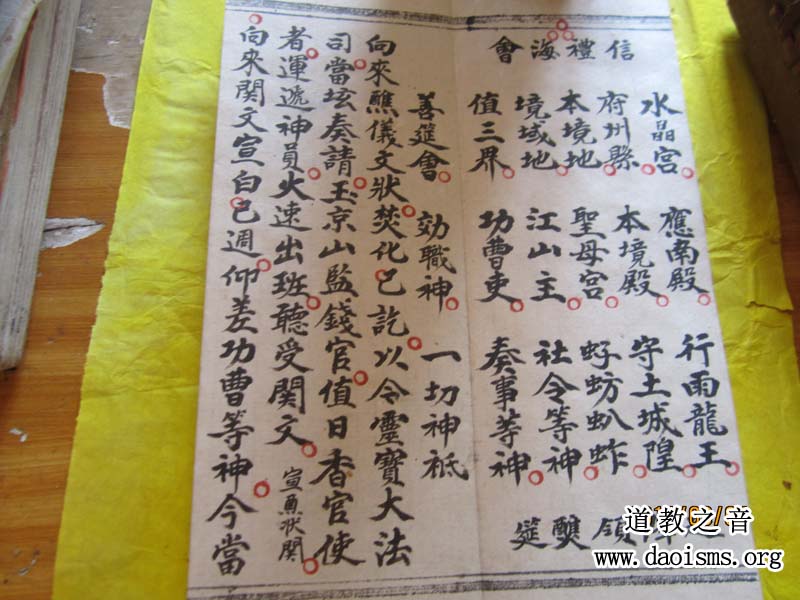 信禮海會
水晶宮 應南殿 行雨龍王
府州縣 本境殿 守土城隍
本境地 聖母宮 虸蚄虯蚱
境域地 江山主 社令等神
值三界 功曹吏 奏事等神
領醮筵
善筵會 効職神 一切神祇
向來醮儀文狀焚化已訖以今靈寶大法
司當垓奏請玉京山監錢官值日香官使
者運遞神員火速出班聽受関文 宣魚狀関
向來関文宣白已週仰差功曹等神今當
道教之音
www.daoisms.org